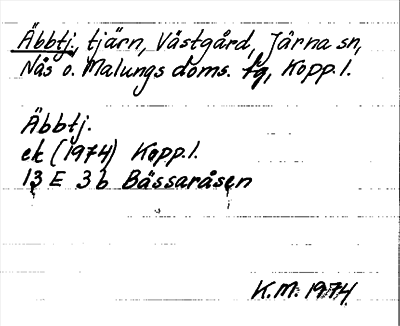 Äbbtj. tjärn, Västgård, Järna sn,
Nås o. Malungs doms. tg, Kopp.l.
Äbbtj.
ek (1974) Kopp.l.
13 E 3b Bässaråsen
K.M. 1974